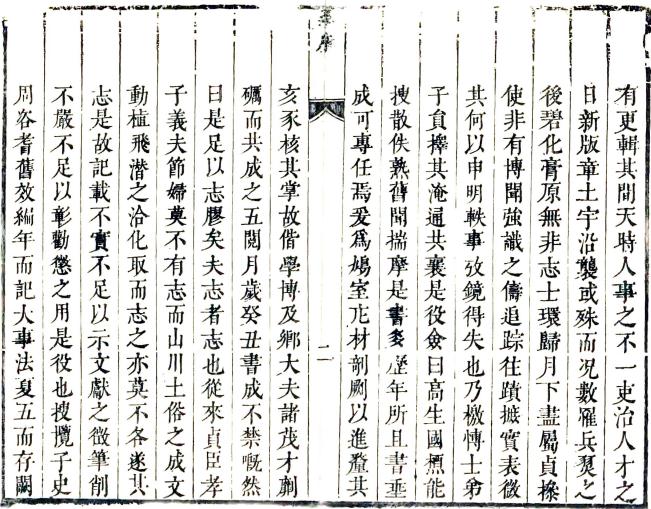 有更輯其間天時人事之不一吏治人才之
日新版章土宇沿襲或殊而况數罹兵燹之
後碧化膏原無非志士環歸月下盡屬貞操
使非有博聞強識之儔追踪往蹟摭實表微
其何以申明軼事攷鏡得失也乃檄博士弟
子負擇其淹通共襄是役僉曰高生國㮣能
搜散佚熟舊聞揣摩是書多歷年所且書垂
成可專任焉爰爲鳩室庀材剞劂以進釐其
二
亥豕核其掌故偕學博及鄉大夫諸茂才劘
礪而共成之五閱月歲癸丑書成不禁嘅然
曰是足以志膠矣夫志者志也從來貞臣孝
子義夫節婦莫不有志而山川土俗之成文
動植飛潛之洽化取而志之亦莫不各遂其
志是故記載不實不足以示文獻之徵筆削
不嚴不足以彰勸懲之用是役也搜攬子史
周咨耆舊效編年而記大事法夏五而存闕